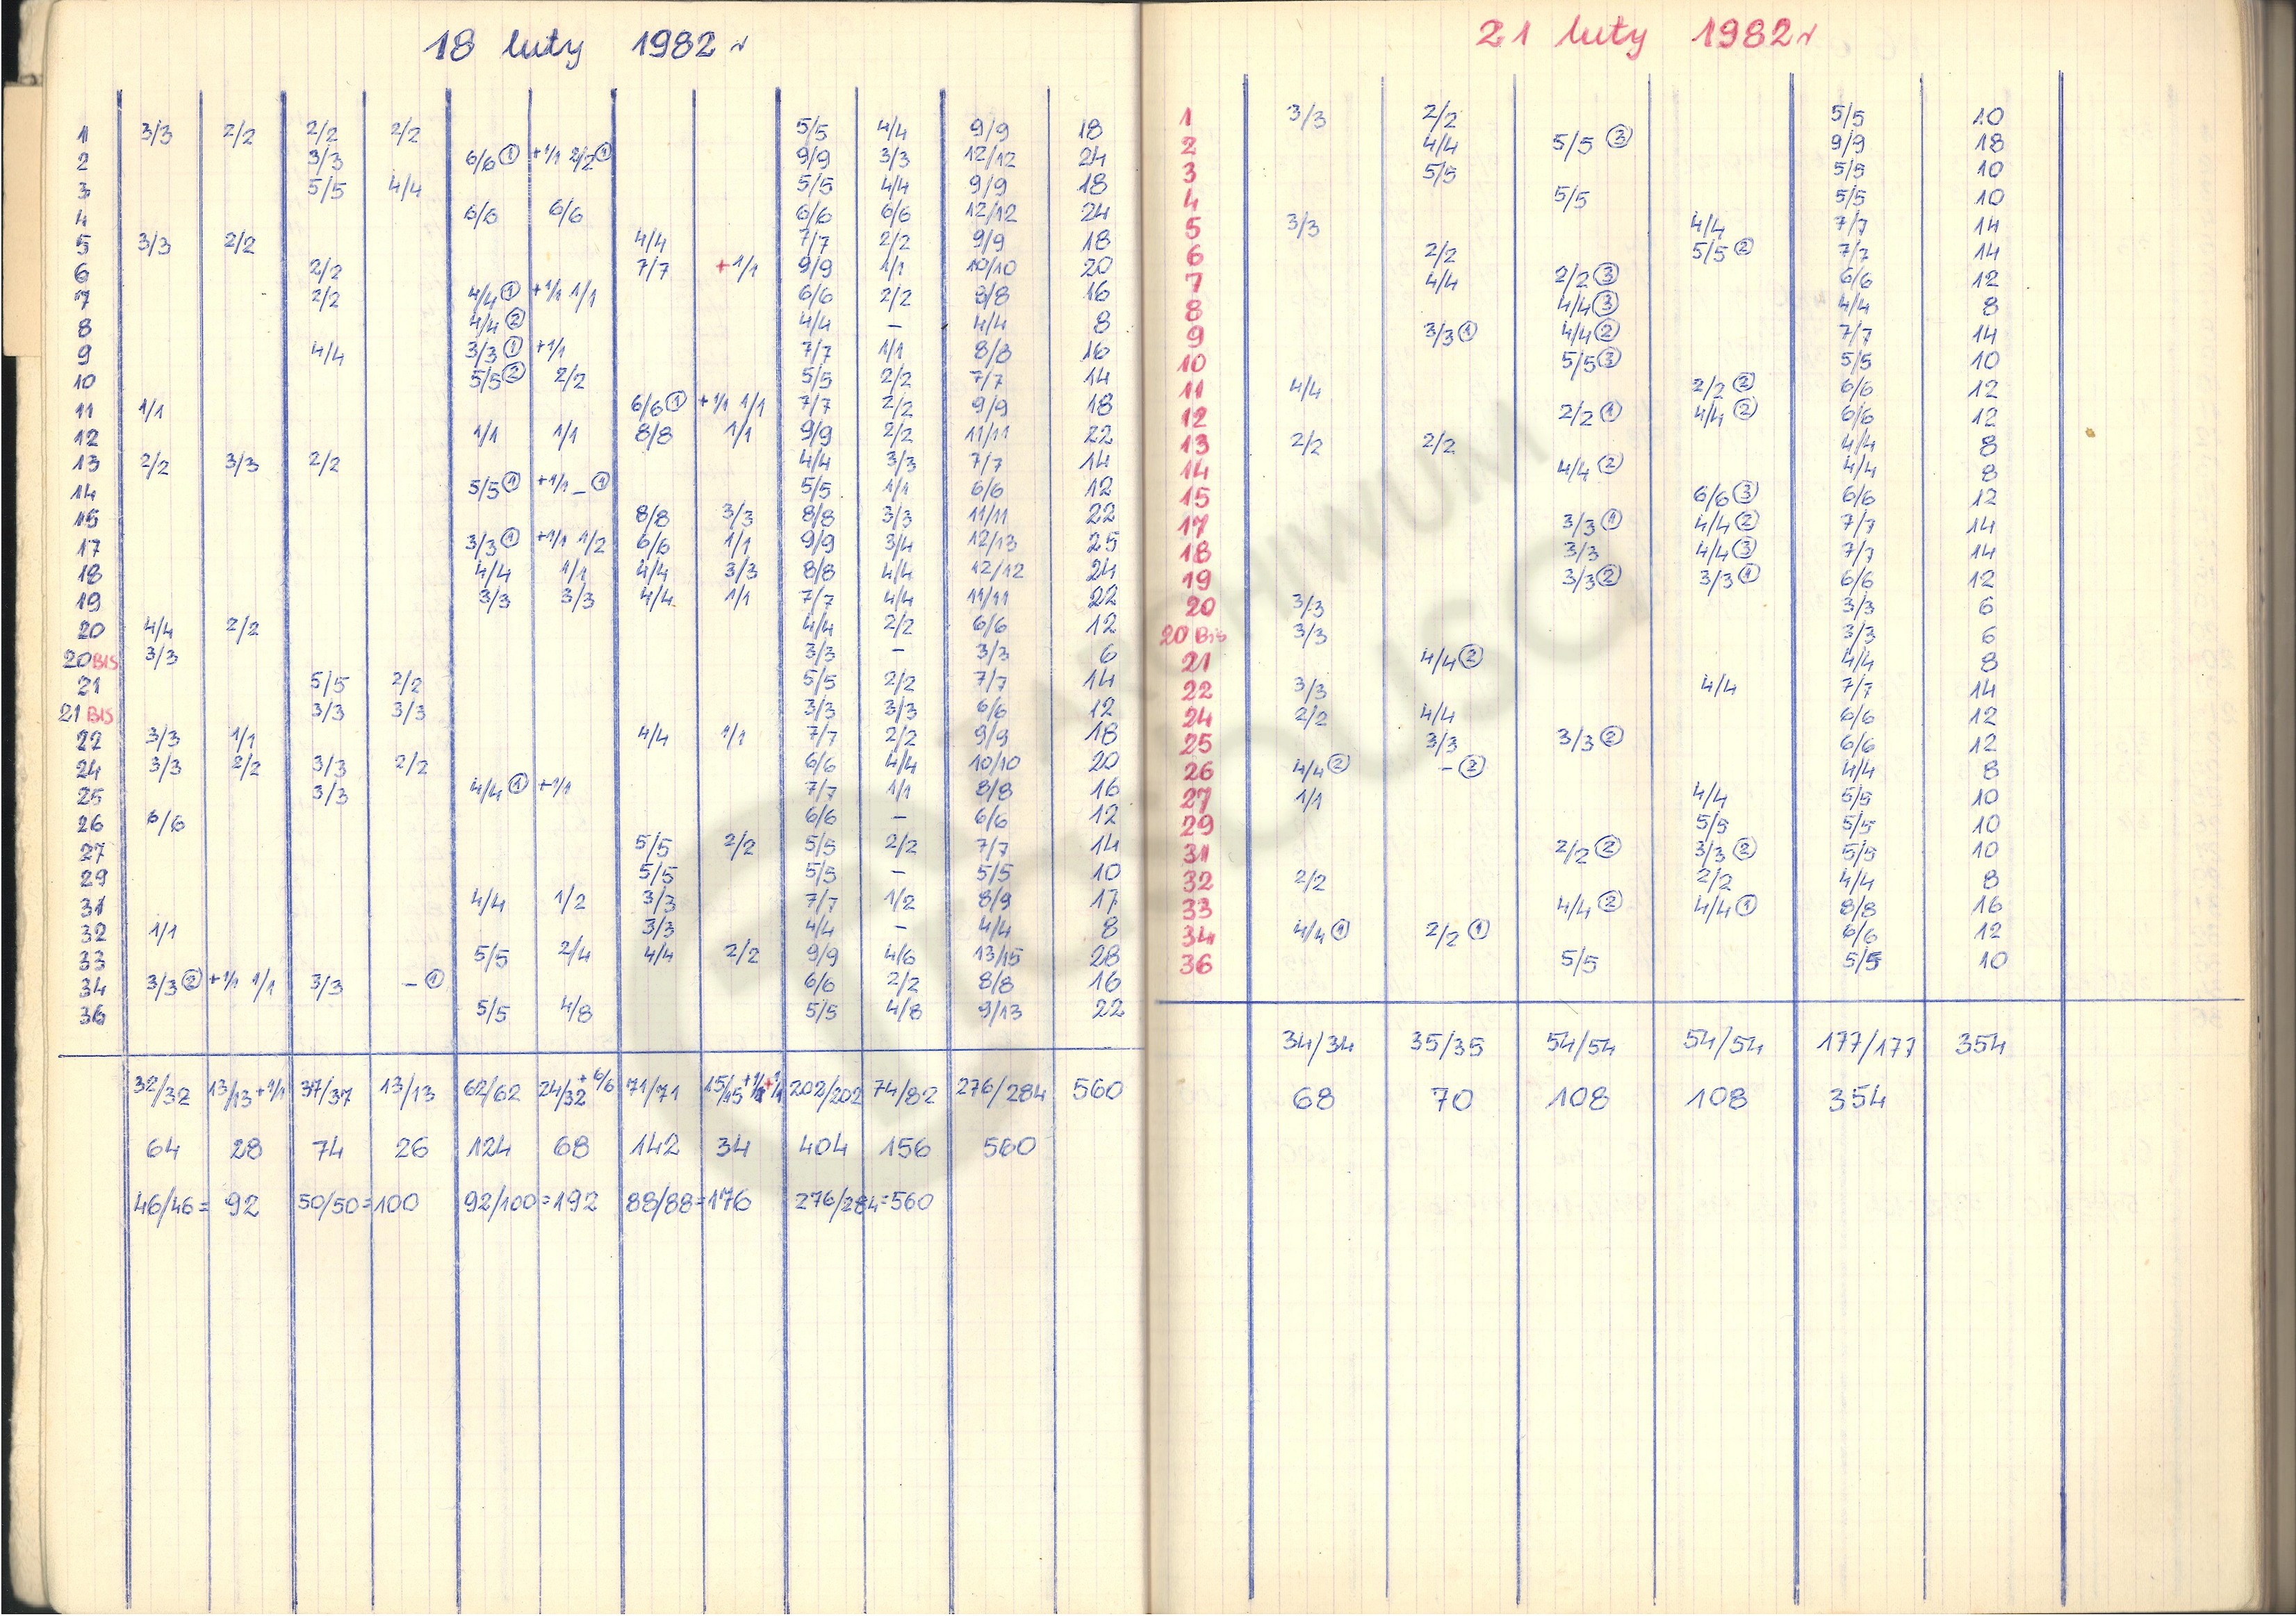 18 luty 1982 r
1 3/3 2/2 2/2 2/2 5/5 4/4 9/9 18
2 3/3 6/6 ① +1/1 2/2 ① 9/9 3/3 12/12 24
3 5/5 4/4 5/5 4/4 9/9 18
4 6/6 6/6 6/6 6/6 12/12 24
5 3/3 2/2 4/4 7/7 2/2 9/9 18
6 2/2 7/7 +1/1 9/9 1/1 10/10 20
7 2/2 4/4 ① +1/1 1/1 6/6 2/2 8/8 16
8 4/4 ② 4/4 – 4/4 8
9 4/4 3/3 ① +1/1 7/7 1/1 8/8 16
10 5/5 ② 2/2 5/5 2/2 7/7 14
11 1/1 6/6 ① +1/1 1/1 7/7 2/2 9/9 18
12 1/1 1/1 8/8 1/1 9/9 2/2 11/11 22
13 2/2 3/3 2/2 4/4 3/3 7/7 14
14 5/5 ① +1/1 – ① 5/5 1/1 6/6 12
15 8/8 3/3 8/8 3/3 11/11 22
17 3/3 ① +1/1 1/2 6/6 1/1 9/9 3/4 12/13 25
18 4/4 1/1 4/4 3/3 8/8 4/4 12/12 24
19 3/3 3/3 4/4 1/1 7/7 4/4 11/11 22
20 4/4 2/2 4/4 2/2 6/6 12
20 BIS 3/3 3/3 – 3/3 6
21 5/5 2/2 5/5 2/2 7/7 14
21 BIS 3/3 3/3 3/3 3/3 6/6 12
22 3/3 1/1 4/4 1/1 7/7 2/2 9/9 18
24 3/3 2/2 3/3 2/2 6/6 4/4 10/10 20
25 3/3 4/4 ① +1/1 7/7 1/1 8/8 16
26 6/6 6/6 – 6/6 12
27 5/5 2/2 5/5 2/2 7/7 14
29 5/5 5/5 – 5/5 10
31 4/4 1/2 3/3 7/7 1/2 8/9 17
32 1/1 3/3 4/4 – 4/4 8
33 5/5 2/4 4/4 2/2 9/9 4/6 13/15 28
34 3/3 ② +1/1 1/1 3/3 – ① 6/6 2/2 8/8 16
36 5/5 4/8 5/5 4/8 9/13 22
32/32 13/13 +1/1 37/37 13/13 62/62 24/32 +6/6 71/71 15/15 +1/1 +1/1 202/202 74/82 276/284 560
64 28 74 26 124 68 142 34 404 156 560
46/46 = 92 50/50 = 100 92/100 = 192 88/88 = 176 276/284 = 560
21 luty 1982 r
1 3/3 2/2 5/5 10
2 4/4 5/5 ③ 9/9 18
3 5/5 5/5 10
4 5/5 5/5 10
5 3/3 4/4 7/7 14
6 2/2 5/5 ② 7/7 14
7 4/4 2/2 ③ 6/6 12
8 4/4 ③ 4/4 8
9 3/3 ① 4/4 ② 7/7 14
10 5/5 ③ 5/5 10
11 4/4 2/2 ② 6/6 12
12 2/2 ① 4/4 ② 6/6 12
13 2/2 2/2 4/4 8
14 4/4 ② 4/4 8
15 6/6 ③ 6/6 12
17 3/3 ① 4/4 ② 7/7 14
18 3/3 4/4 ③ 7/7 14
19 3/3 ② 3/3 ① 6/6 12
20 3/3 3/3 6
20 Bis 3/3 3/3 6
21 4/4 ② 4/4 8
22 3/3 4/4 7/7 14
24 2/2 4/4 6/6 12
25 3/3 3/3 ② 6/6 12
26 4/4 ② – ② 4/4 8
27 1/1 4/4 5/5 10
29 5/5 5/5 10
31 2/2 ② 3/3 ② 5/5 10
32 2/2 2/2 4/4 8
33 4/4 ② 4/4 ① 8/8 16
34 4/4 ① 2/2 ① 6/6 12
36 5/5 5/5 10
34/34 35/35 54/54 54/54 177/177 354
68 70 108 108 354